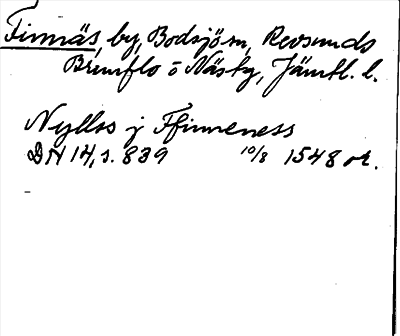 Finnäs, by, Bodsjö sn, Revsunds
Brunflo o Näsky, Jämtl. l.
Nyllss j Ffinneness
DN 14, s. 839 10/8 1548 or.